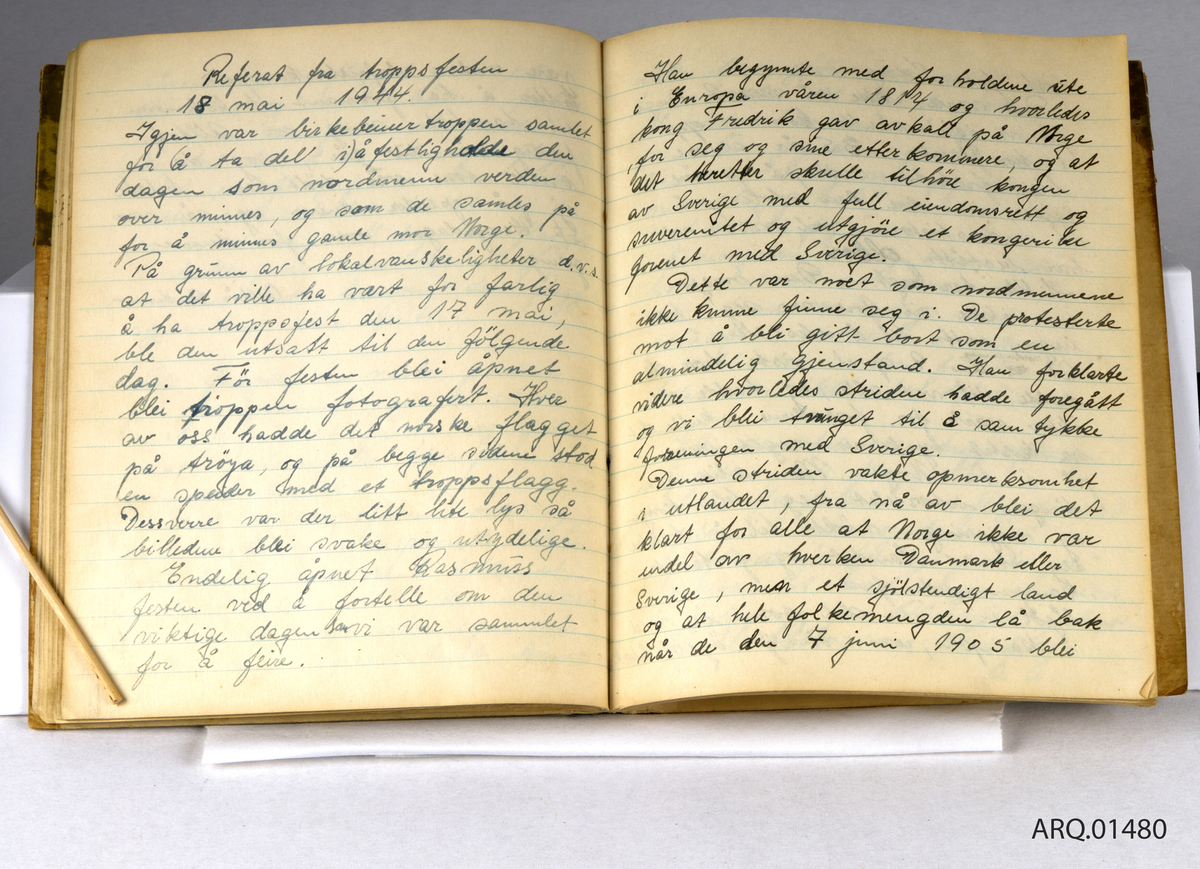 Referat fra troppsfesten
18 mai 1944.
Igjen var birkebeinertroppen samlet
for å ta del i å festligholde den
dagen som nordmenn verden
over minnes, og som de samles på
for å minnes gamle mor Norge.
På grunn av lokalvanskeligheter d.v.s.
at det ville ha vært for farlig
å ha troppsfest den 17 mai,
ble den utsatt til den følgende
dag. Før festen blei åpnet
blei troppen fotografert. Hver
av oss hadde det norske flagget
på trøya, og på begge sidene stod
en speider med et troppsflagg.
Dessverre var der litt lite lys så
billedene blei svake og utydelige.
Endelig åpnet Rasmuss
festen ved å fortelle om den
viktige dagen som vi var sammlet
for å feire.
Han begynnte med forholdene ute
i Europa våren 1814 og hvorledes
kong Fredrik gav avkall på Norge
for seg og sine etterkommere, og at
det heretter skulle tilhöre kongen
av Sverige med full eiendomsrett og
suverenitet og utgjöre et kongerike
forenet med Sverige.
Dette var noet som nordmennene
ikke kunne finne seg i. De protesterte
mot å bli gitt bort som en
almindelig gjenstand. Han forklarte
videre hvorledes striden hadde foregått
og vi blei tvunget til å samtykke
foreningen med Sverige.
Denne striden vakte opmerksomhet
i utlandet, fra nå av blei det
klart for alle at Norge ikke var
endel av hverken Danmark eller
Sverige, men et sjölstendigt land
og at hele folkemengden lå bak
når de den 7 juni 1905 blei
ARQ.01480